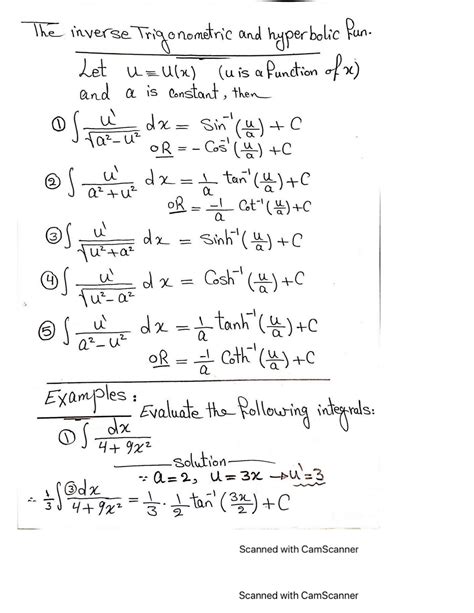 The inverse Trigonometric and hyperbolic Fun.
Let u = u(x) (u is a function of x)
and a is constant, then
① ∫ u` / √(a² - u²) dx = Sin⁻¹(u/a) + C
OR = - Cos⁻¹(u/a) + C
② ∫ u` / (a² + u²) dx = 1/a tan⁻¹(u/a) + C
OR = -1/a Cot⁻¹(u/a) + C
③ ∫ u` / √(u² + a²) dx = Sinh⁻¹(u/a) + C
④ ∫ u` / √(u² - a²) dx = Cosh⁻¹(u/a) + C
⑤ ∫ u` / (a² - u²) dx = 1/a tanh⁻¹(u/a) + C
OR = -1/a Coth⁻¹(u/a) + C
Examples: Evaluate the following integrals:
① ∫ dx / (4 + 9x²)
Solution
∵ a = 2, u = 3x → u` = 3
∴ 1/3 ∫ ③dx / (4 + 9x²) = 1/3 · 1/2 tan⁻¹(3x/2) + C
Scanned with CamScanner
Scanned with CamScanner